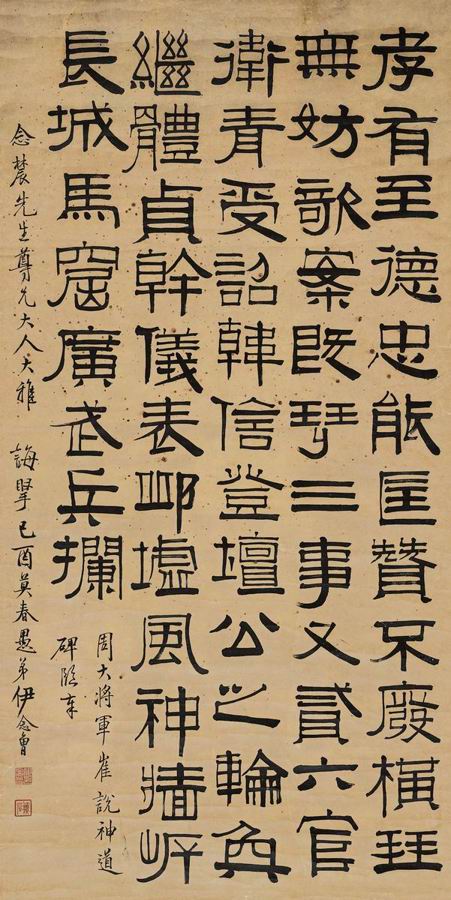 孝有至德忠能匡贊不廢橫
無妨歌案既三事又貳六官
衛青受詔韓信登壇公之輪奐
繼體貞幹儀表邱墟風神牆
長城馬窟廣武兵攔
周大將軍崔說神道
碑臨奉
念農先生尊兄大人大雅 誨 己酉莫春愚弟伊念曾